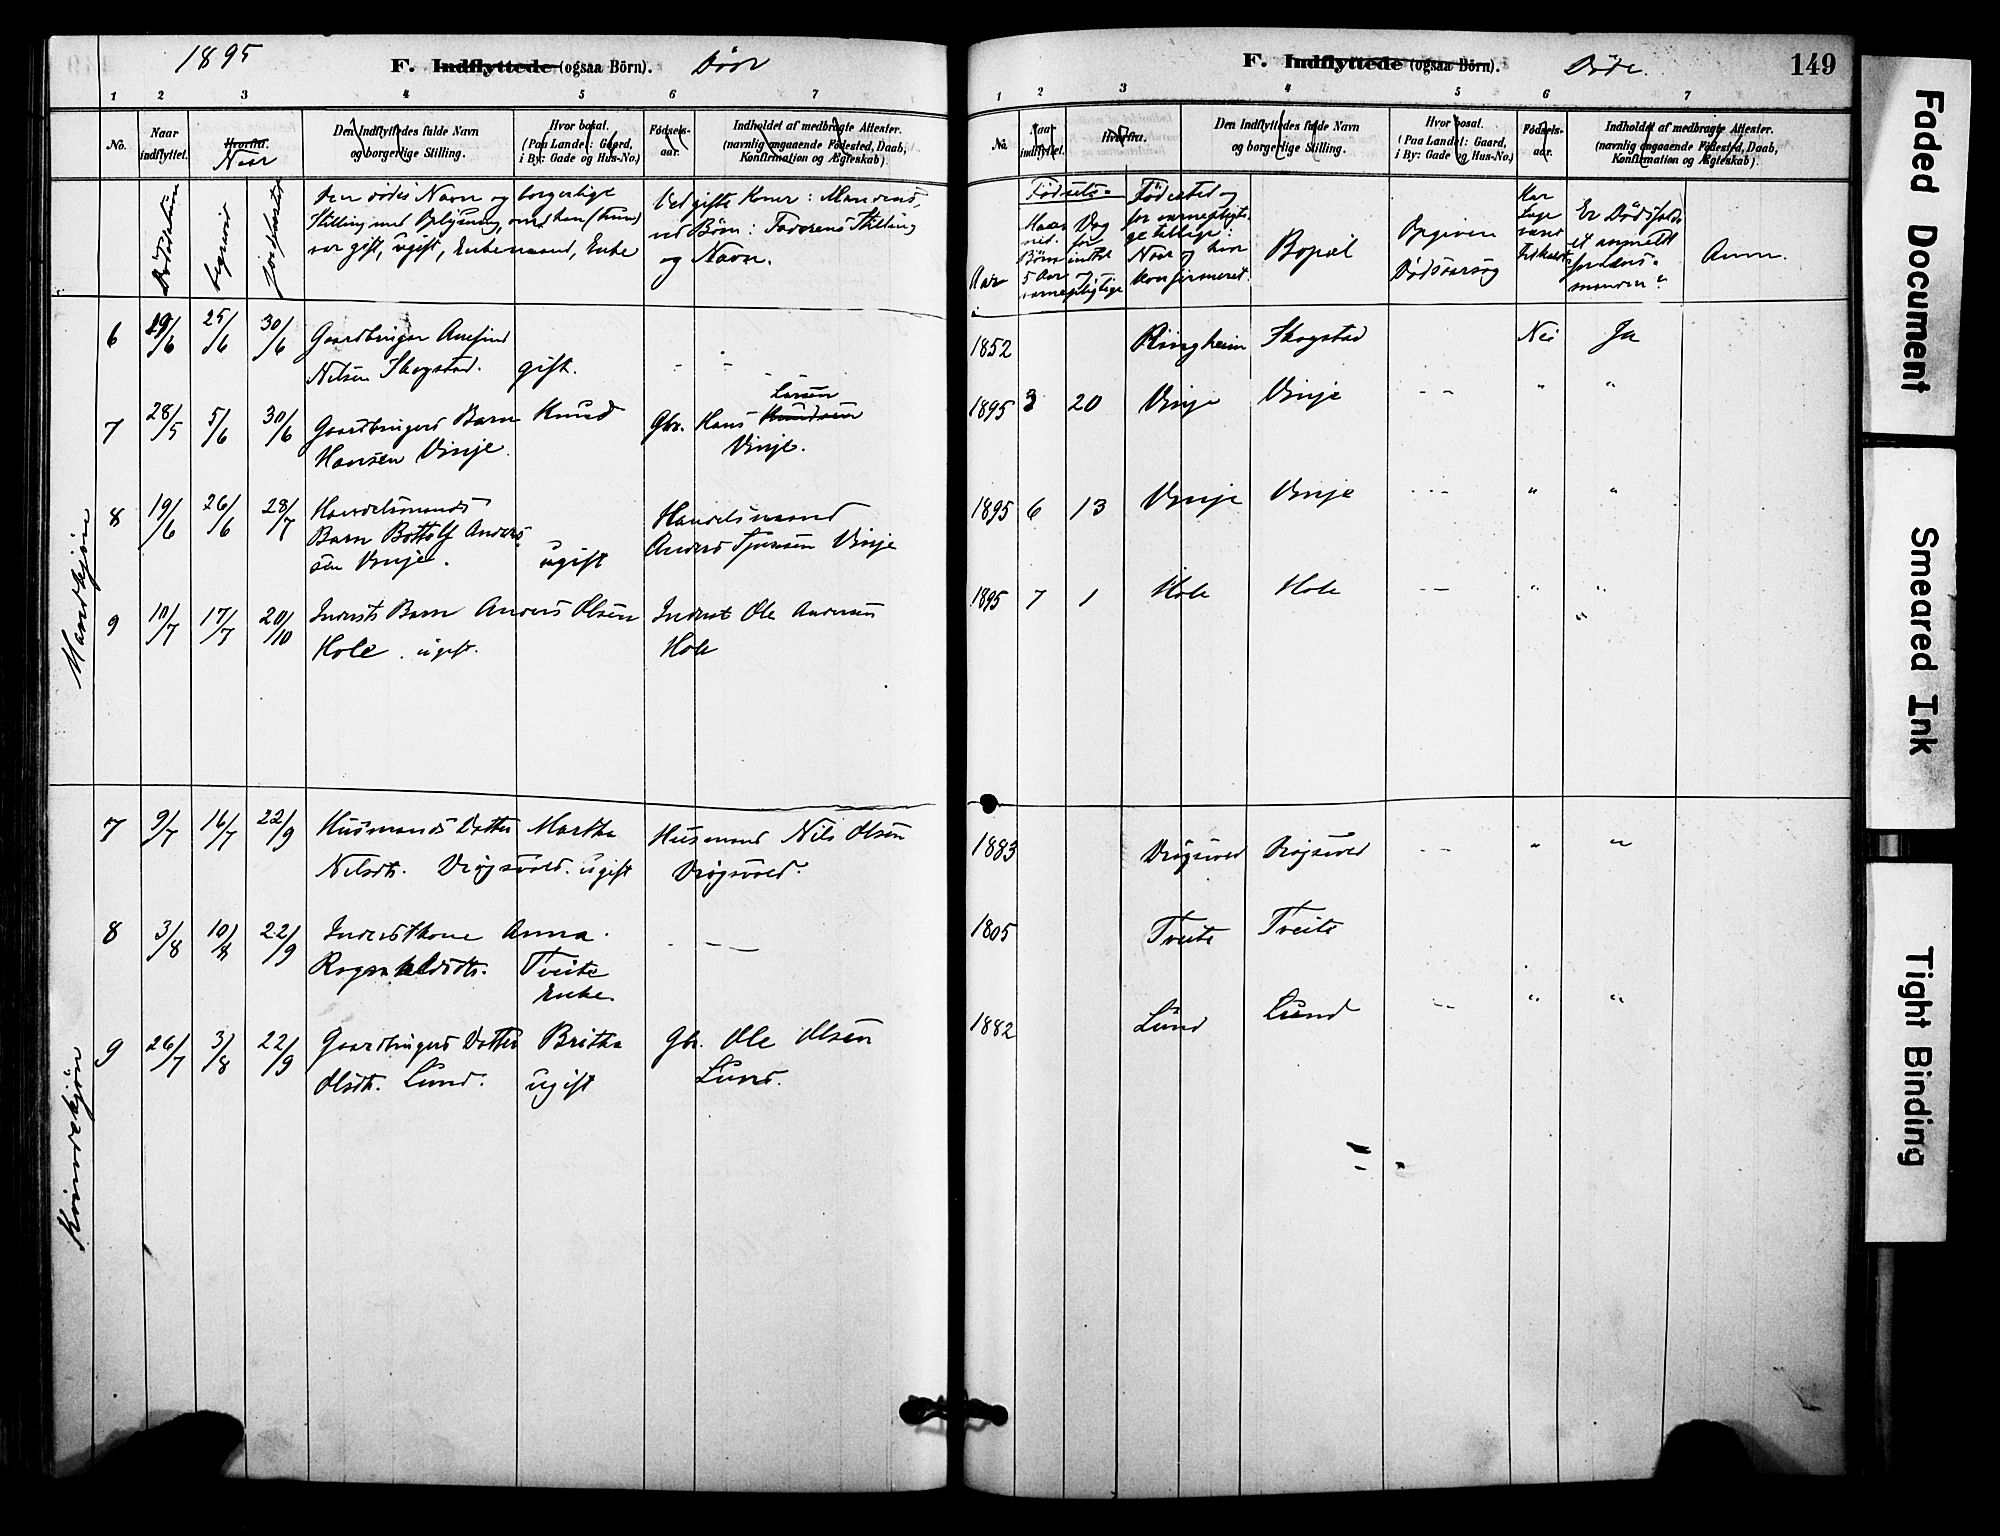 1895
F. Indflyttede (ogsaa Börn). Döde
1 2 3 4 5 6 7
No.
Naar
indflyttet.
Hvorfra.
Naar
Den Indflyttedes fulde Navn
og borgerlige Stilling.
Hvor bosat.
(Paa Landet: Gaard,
i By: Gade og Hus-No.)
Fødsels-
aar.
Indholdet af medbragte Attester.
(navnlig angaaende Fødested, Daab,
Konfirmation og Ægteskab).
begravet
jordfæstet
Den dödes Navn og borgerlige
Stilling med Oplysning, om han (hun)
var gift, ugift, Enkemand, Enke
Ved gifte Koner: Mandens,
ved Börn: Faderens Stilling
og Navn.
Mandkjön
6 29/6 25/6 30/6 Gaardbruger Amfind
Nilsen Skogstad. gift. - -
Larsen
7 28/5 5/6 30/6 Gaardbrugers Barn Knud Gbr. Hans Knudsen
Hansen Vinje. Vinje.
8 19/6 26/6 28/7 Handelsmands Handelsmand
Barn Bottolf Anders-
sen Vinje. ugift Anders Vinje
9 10/7 17/7 20/10 Indersts Barn Anders Olsen Inderst Ole Andersen
Hole. ugift. Hole
Kvindekjön
7 9/7 16/7 22/9 Husmands Datter Martha Husmand Nils Olsen
Nilsdtr. Drögsvold. ugift Drögsvold.
8 3/8 10/8 22/9 Inderstkone Anna - - -
Ragnhildsdtr. Tveite
Enke.
9 26/7 3/8 22/9 Gaardbrugers Datter Britha Gbr. Ole Olsen
Olsdtr. Lund. ugift Lund.
F. Indflyttede (ogsaa Börn). Döde. 149
1 2 3 4 5 6 7
No.
Naar
indflyttet.
Hvorfra.
Den Indflyttedes fulde Navn
og borgerlige Stilling.
Hvor bosat.
(Paa Landet: Gaard,
i By: Gade og Hus-No.)
Fødsels-
aar.
Indholdet af medbragte Attester.
(navnlig angaaende Fødested, Daab,
Konfirmation og Ægteskab).
Fødsels-
Aar
Maa-
ned.
Börn
5 Aar
Dag
for
indtil
og
værnepligtige
Födested og
for værnepligti-
ge tillige:
Naar og hvor
konfirmeret.
Bopæl
Opgiven
Dödsaarsag
Har
Læge
været
tilkaldt
Er Dödsfaldet
anmeldt
for Lens-
manden?
Anm.
1852 Ringheim Skogstad Nei Ja
1895 3 20 Vinje Vinje - - " "
1895 6 13 Vinje Vinje - - - " "
1895 7 1 Hole Hole - - " "
1883 Drögsvold Drögsvold - - " "
1805 Tveite Tveite
1882 Lund Lund - - " "
Faded Document
Smeared Ink
Tight Binding